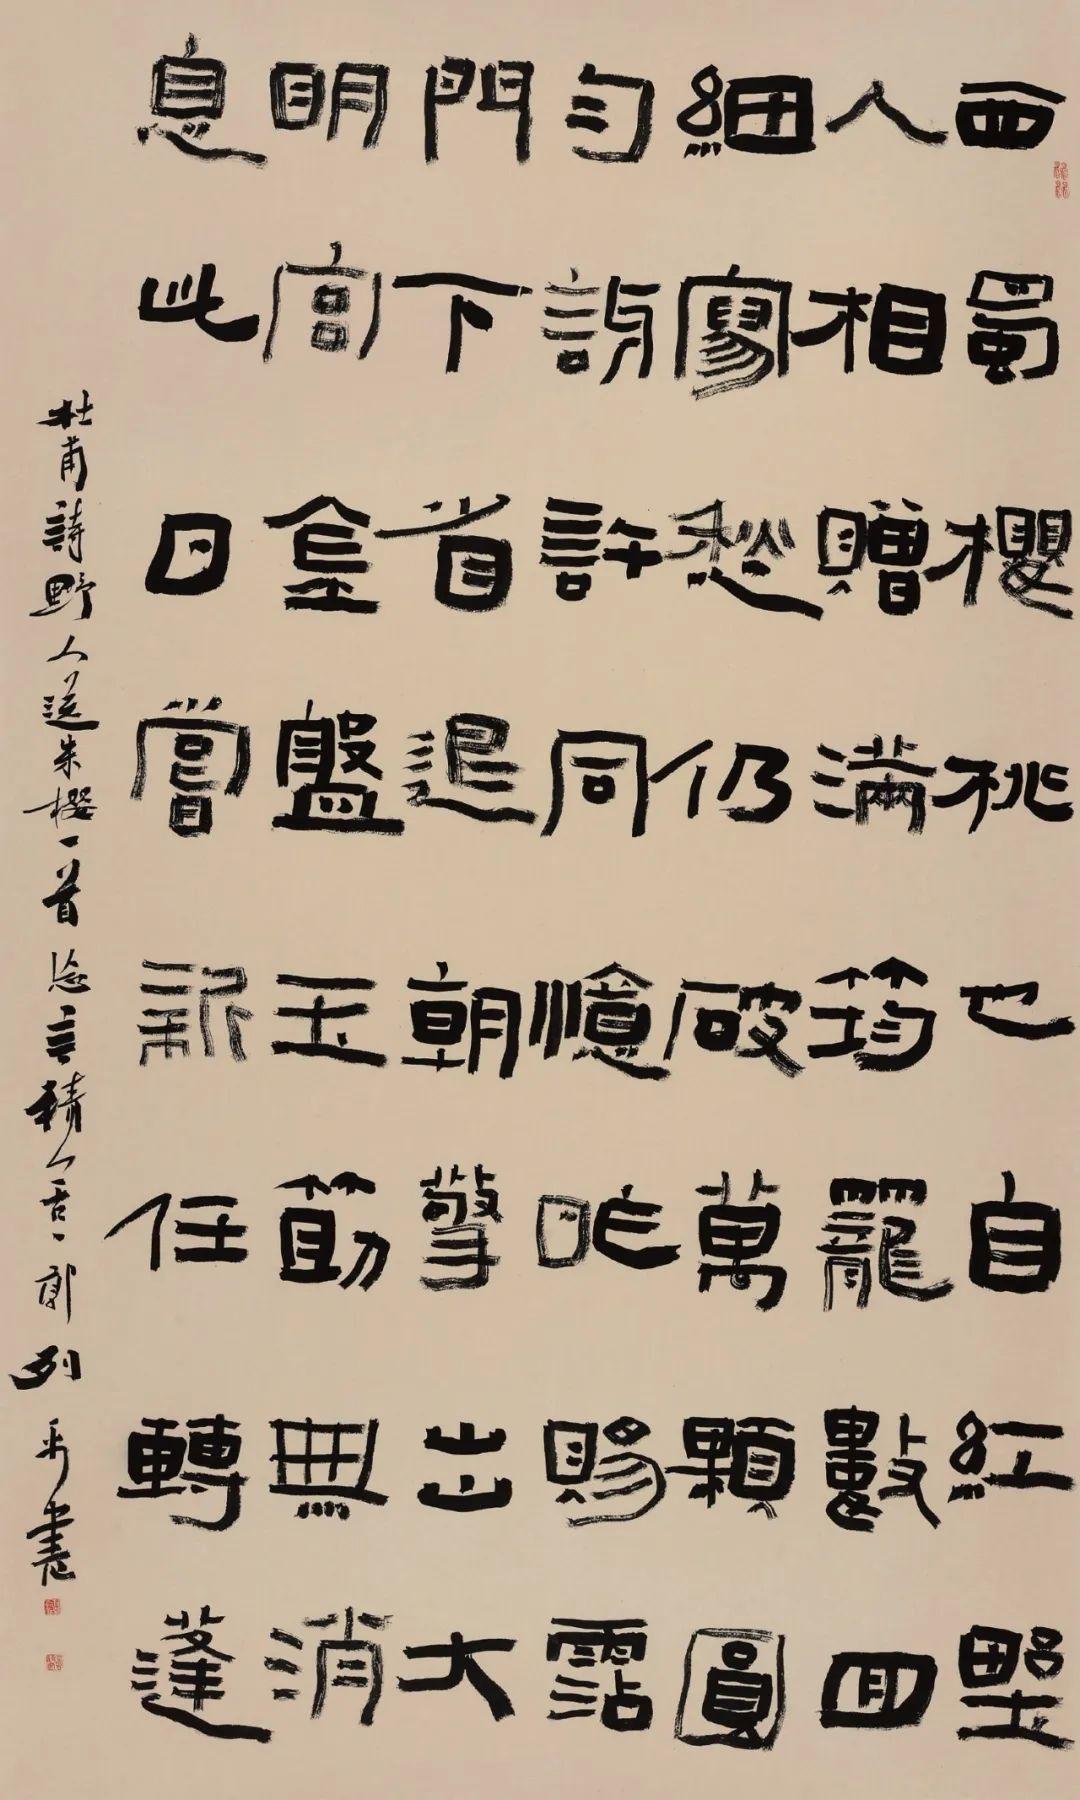 西蜀櫻桃也自紅野
人相贈滿筠籠數回
細寫愁仍破萬顆圓
勻訝許同憶昨賜霑
門下省退朝擎出大
明宮金盤玉筯無消
息此日嘗新任轉蓬
杜甫詩野人送朱櫻一首 言精舍郭列平書